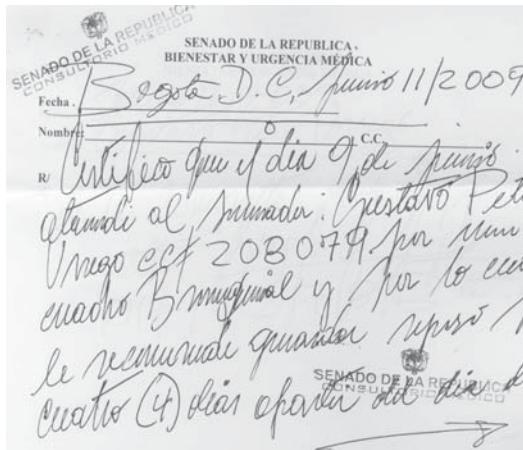 SENADO DE LA REPUBLICA
CONSULTORIO MÉDICO
SENADO DE LA REPUBLICA.
BIENESTAR Y URGENCIA MÉDICA
Fecha. Bogotá D.C, Junio 11/2009
Nombre: C.C.
R/ Certifico que el día 9 de Junio
atendí al senador: Gustavo Pet
Urrego cc# 208079 por un
cuadro Bronquial y por lo cu
le recomendé guardar reposo
SENADO DE LA REPUBLICA
CONSULTORIO MEDICO
cuatro (4) días apartir del día d